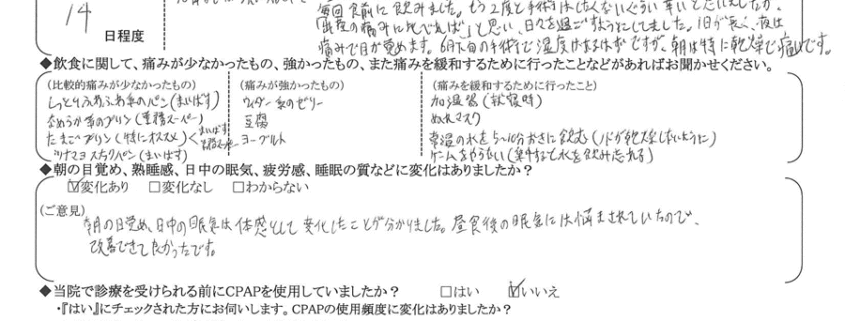 毎回食前に飲みました。もう2度と手術はしたくないぐらい辛いと思いましたが、
14 日程度
「出産の痛みに比べれば」と思い、日々を過ごすようにしてました。1日が長く、夜は
痛みで目が覚めます。6月下旬の手術で湿度があるはずですが、朝は特に乾燥で痛いです。
◆飲食に関して、痛みが少なかったもの、強かったもの、また痛みを緩和するために行ったことなどがあればお聞かせください。
(比較的痛みが少なかったもの) (痛みが強かったもの) (痛みを緩和するために行ったこと)
しっとりふわふわ系のパン(まいばす) ウィダー系のゼリー 加湿器(就寝時)
なめらか系のプリン(業務スーパー) 豆腐 ぬれマスク
たまごプリン(特にオススメ) まいばす ヨーグルト 常温の水を5〜10分おきに飲む(ノドが乾燥しないように)
ツナマヨ パン(まいばす) ゲームをやらない(集中すると水を飲み忘れる)
◆朝の目覚め、熟睡感、日中の眠気、疲労感、睡眠の質などに変化はありましたか?
☑変化あり □変化なし □わからない
(ご意見)
朝の目覚め、日中の眠気は体感として変化したことが分かりました。昼食後の眠気には悩まされていたので、
改善できて良かったです。
◆当院で診療を受けられる前にCPAPを使用していましたか? □はい ☑いいえ
・『はい』にチェックされた方にお伺いします。CPAPの使用頻度に変化はありましたか?